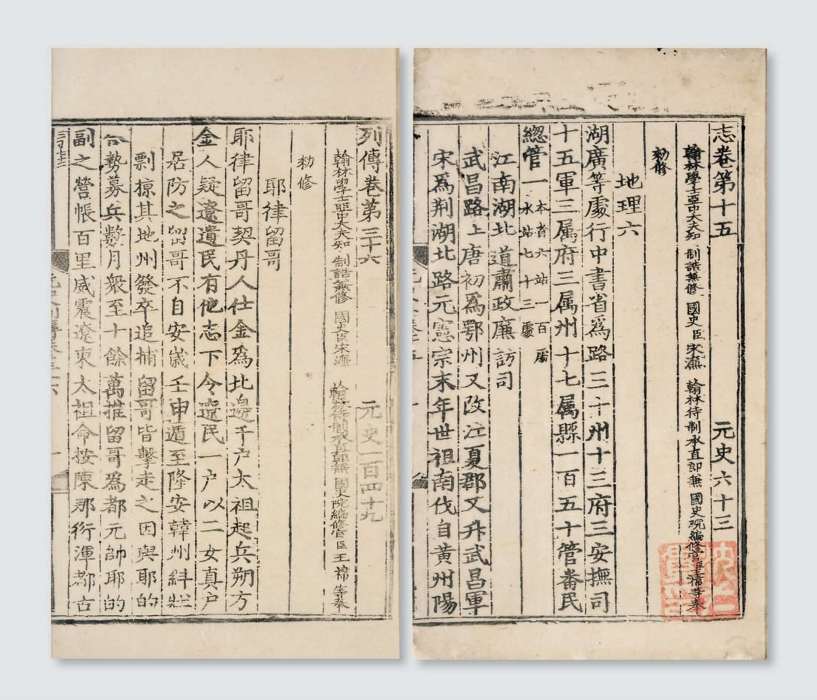 志卷第十五 元史六十三
翰林學士亞中大夫知 制誥兼修 國史臣宋濂 翰林待制承直郎兼 國史院編修官臣王褘等奉
勑修
地理六
湖廣等處行中書省爲路三十州十三府三安撫司
十五軍三属府三属州十七属縣一百五十管番民
總管一
本省六站一百處
水站七十三處
江南湖北道肅政廉訪司
武昌路上唐初爲鄂州又改江夏郡又升武昌軍
宋爲荆湖北路元憲宗末年世祖南伐自黄州陽
列傳卷第三十六 元史一百四十九
翰林學士亞中大夫知 制誥兼修 國史臣宋濂 翰林待制承直郎兼 國史院編修官臣王褘等奉
勑修
耶律留哥
耶律留哥契丹人仕金爲北邊千户太祖起兵朔方
金人疑遼遺民有他志下令遼民一户以二女真户
居防之留哥不自安歲壬申遁至隆安韓州糾壯
剽掠其地州發卒追捕留哥皆擊走之因與耶的
合勢募兵數月衆至十餘萬推留哥爲都元帥耶的
副之營帳百里威震遼東太祖命按陳那衍渾都古